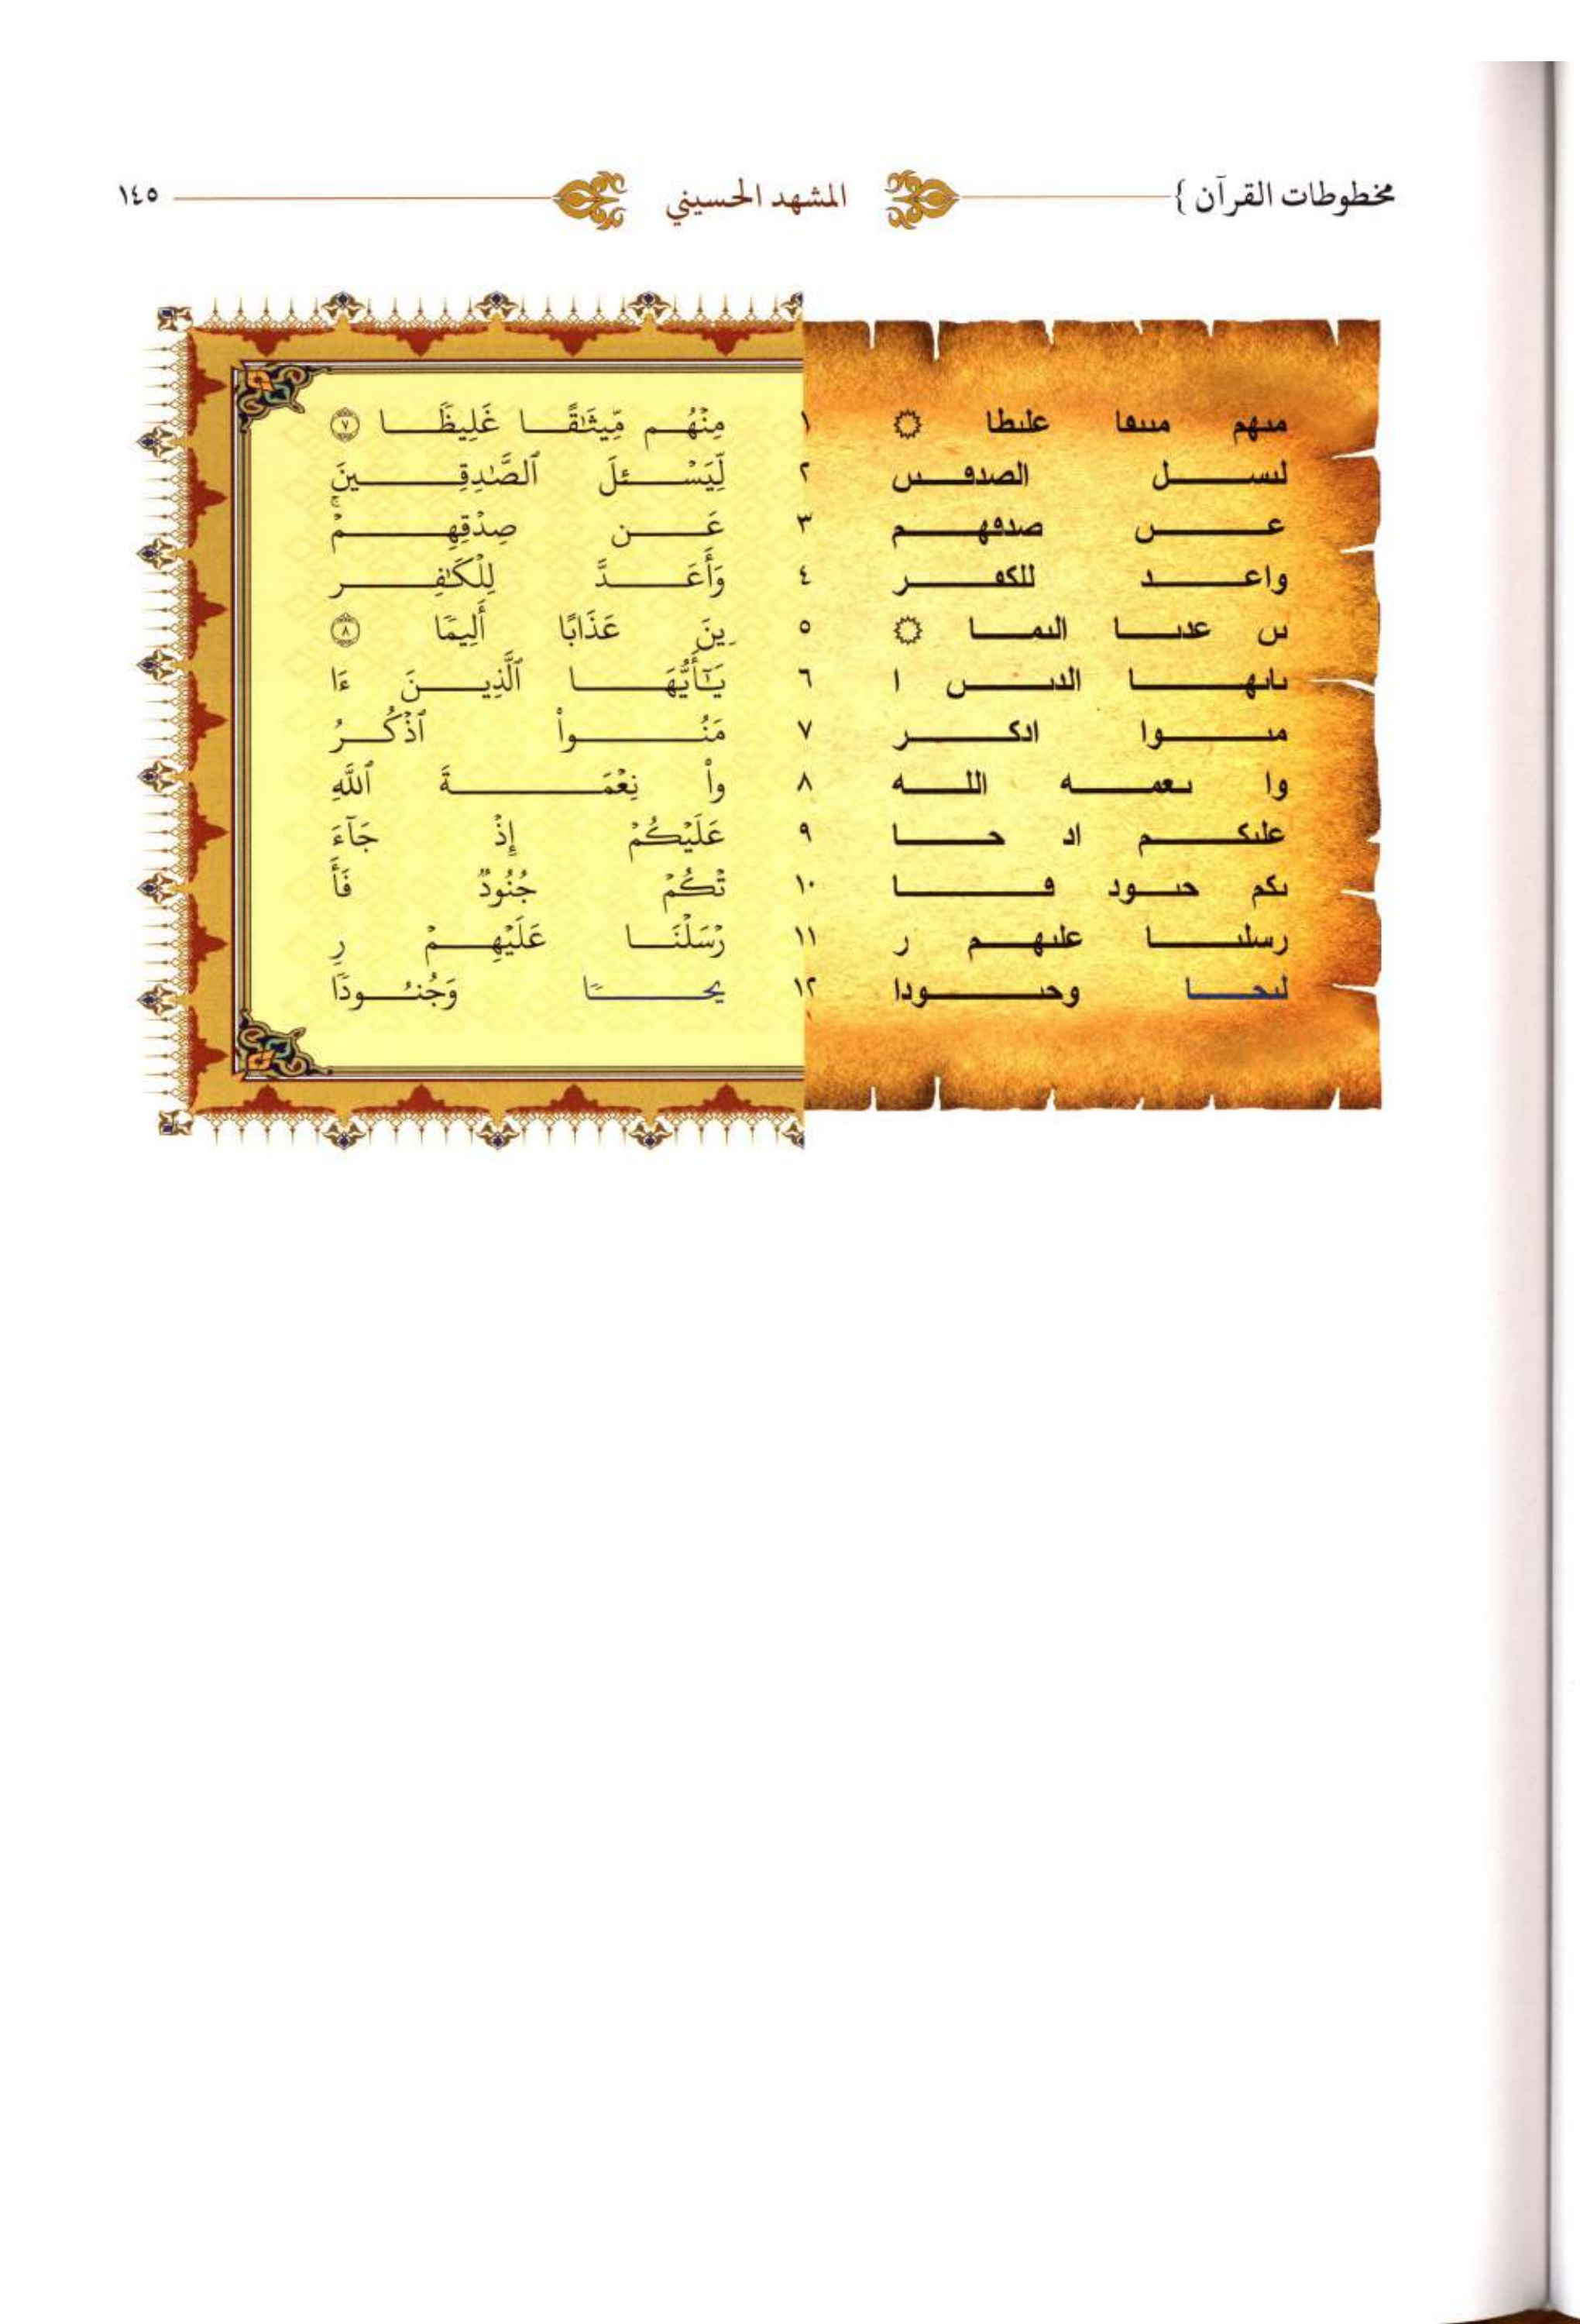 مخطوطات القرآن } المشهد الحسيني ١٤٥
مىهم مىىڡا علىطا ١ مِنْهُم مِّيثَٰقًا غَلِيظًا ٧
لىسل الصدڡىں ٢ لِّيَسْـَٔلَ ٱلصَّٰدِقِينَ
عں صدڡهم ٣ عَن صِدْقِهِمْۚ
واعد للكڡر ٤ وَأَعَدَّ لِلْكَٰفِر
ىں عدىا الىما ٥ ِينَ عَذَابًا أَلِيمًا ٨
ىاىها الدىں ا ٦ يَٰٓأَيُّهَا ٱلَّذِينَ ءَا
مىوا ادكر ٧ مَنُوا۟ ٱذْكُرُ
وا ىعمه الله ٨ وا۟ نِعْمَةَ ٱللَّهِ
علىكم اد حا ٩ عَلَيْكُمْ إِذْ جَآءَ
ىكم حىود ڡا ١٠ تْكُمْ جُنُودٌ فَأَ
رسلىا علىهم ر ١١ رْسَلْنَا عَلَيْهِمْ رِ
لىحا وحىودا ١٢ يحًا وَجُنُودًا